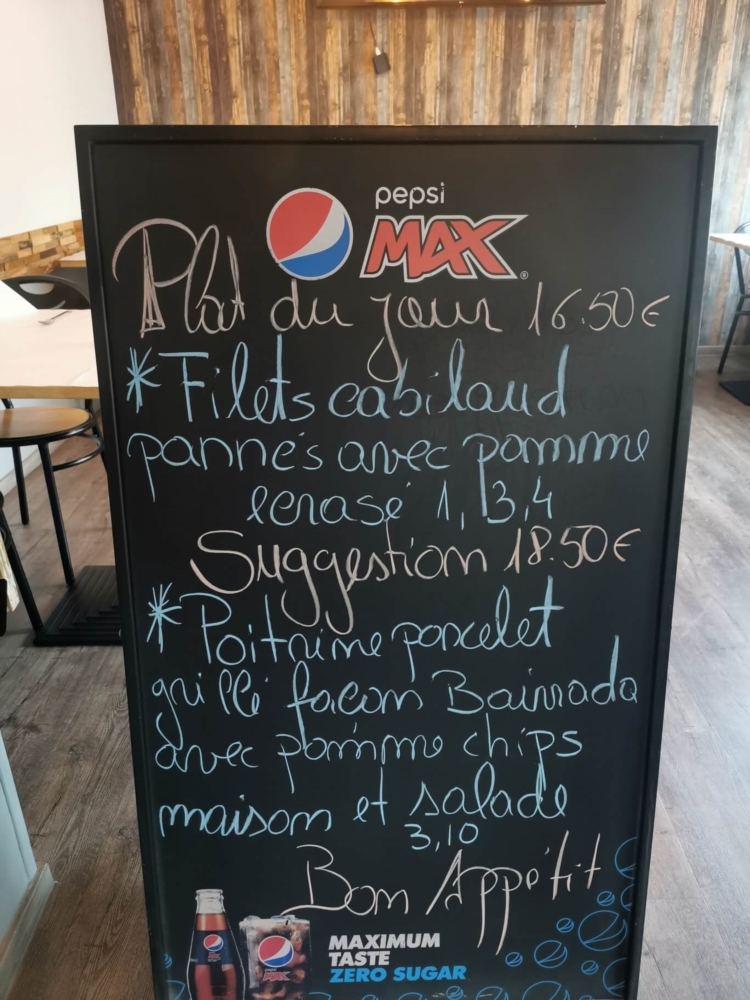 pepsi
MAX
Plat du jour 16.50€
*Filets cabilaud
pannés avec pomme
ecrasé 1, 3,4
Suggestion 18.50€
*Poitrine porcelet
grillé façom Bairrada
avec pomme chips
maison et salade
3,10
Bom Appétit
MAXIMUM
TASTE
ZERO SUGAR